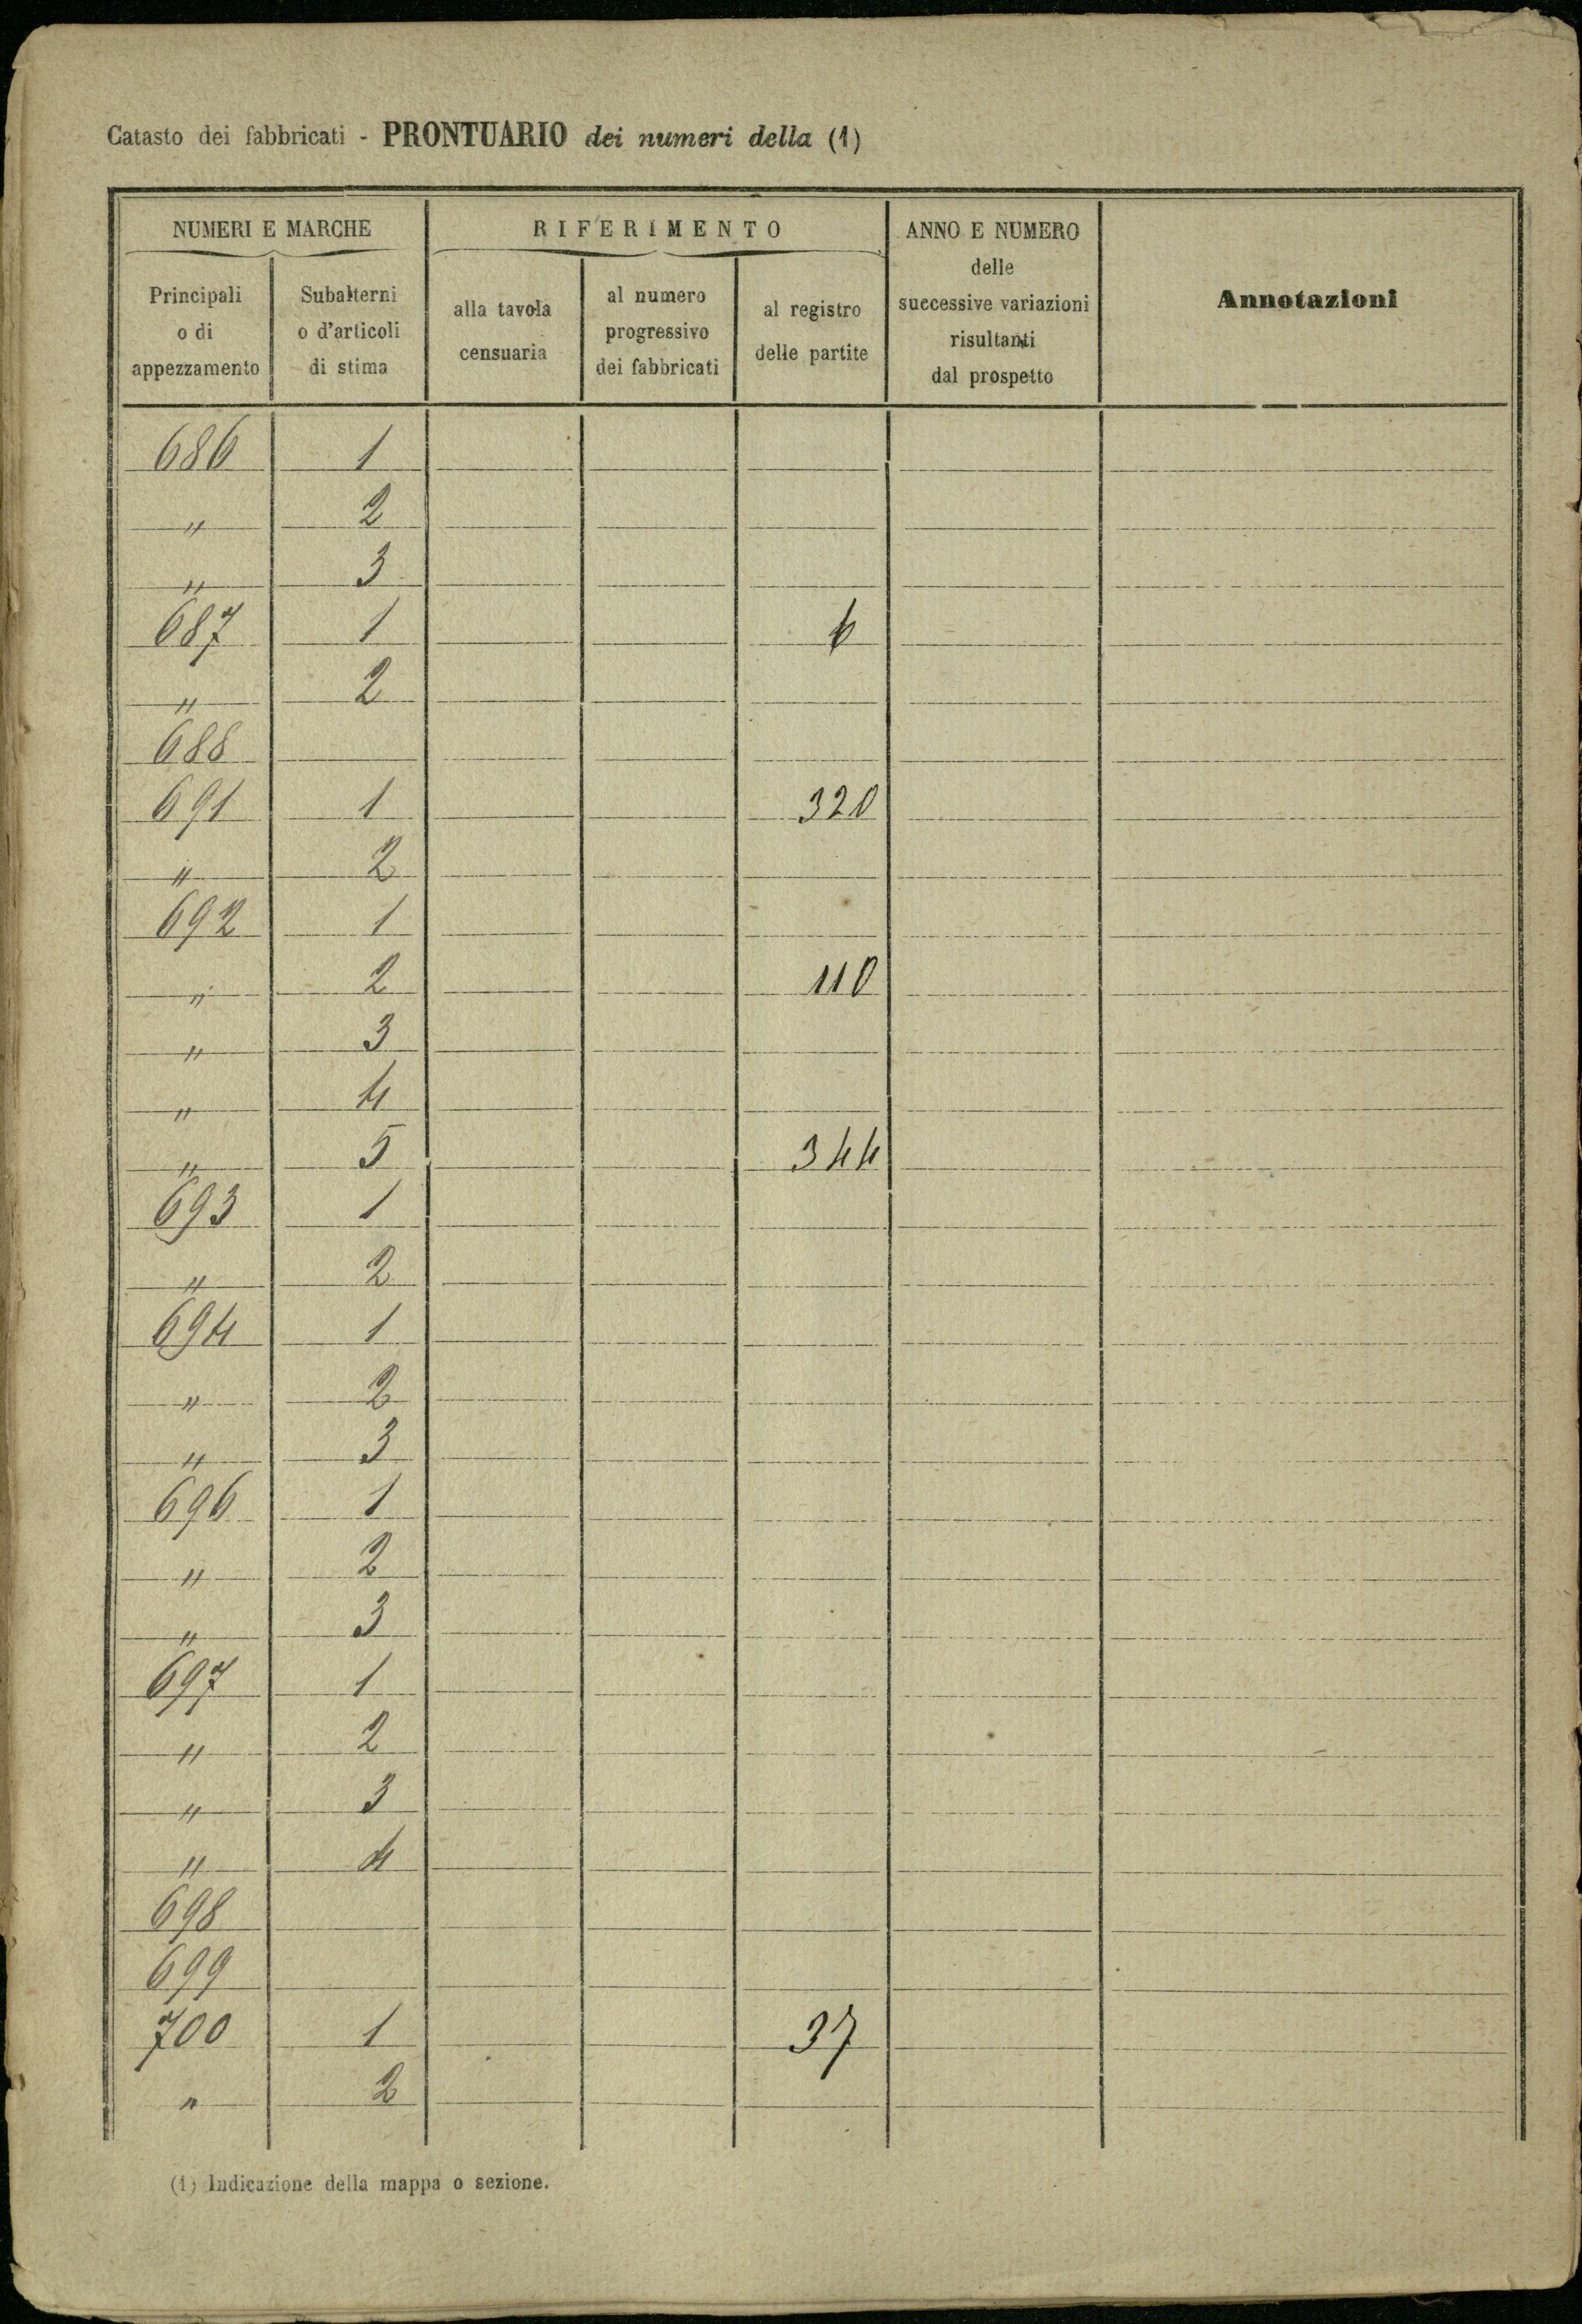 Catasto dei fabbricati - PRONTUARIO dei numeri della (1)
NUMERI E MARCHE
RIFERIMENTO
ANNO E NUMERO
delle
successive variazioni
risultanti
dal prospetto
Annotazioni
Principali
o di
appezzamento
Subalterni
o d'articoli
di stima
alla tavola
censuaria
al numero
progressivo
dei fabbricati
al registro
delle partite
686 1
" 2
" 3
687 1 6
" 2
688
691 1 320
" 2
692 1
" 2 110
" 3
" 4
" 5 344
693 1
" 2
694 1
" 2
" 3
696 1
" 2
" 3
697 1
" 2
" 3
" 4
698
699
700 1 37
" 2
(1) Indicazione della mappa o sezione.